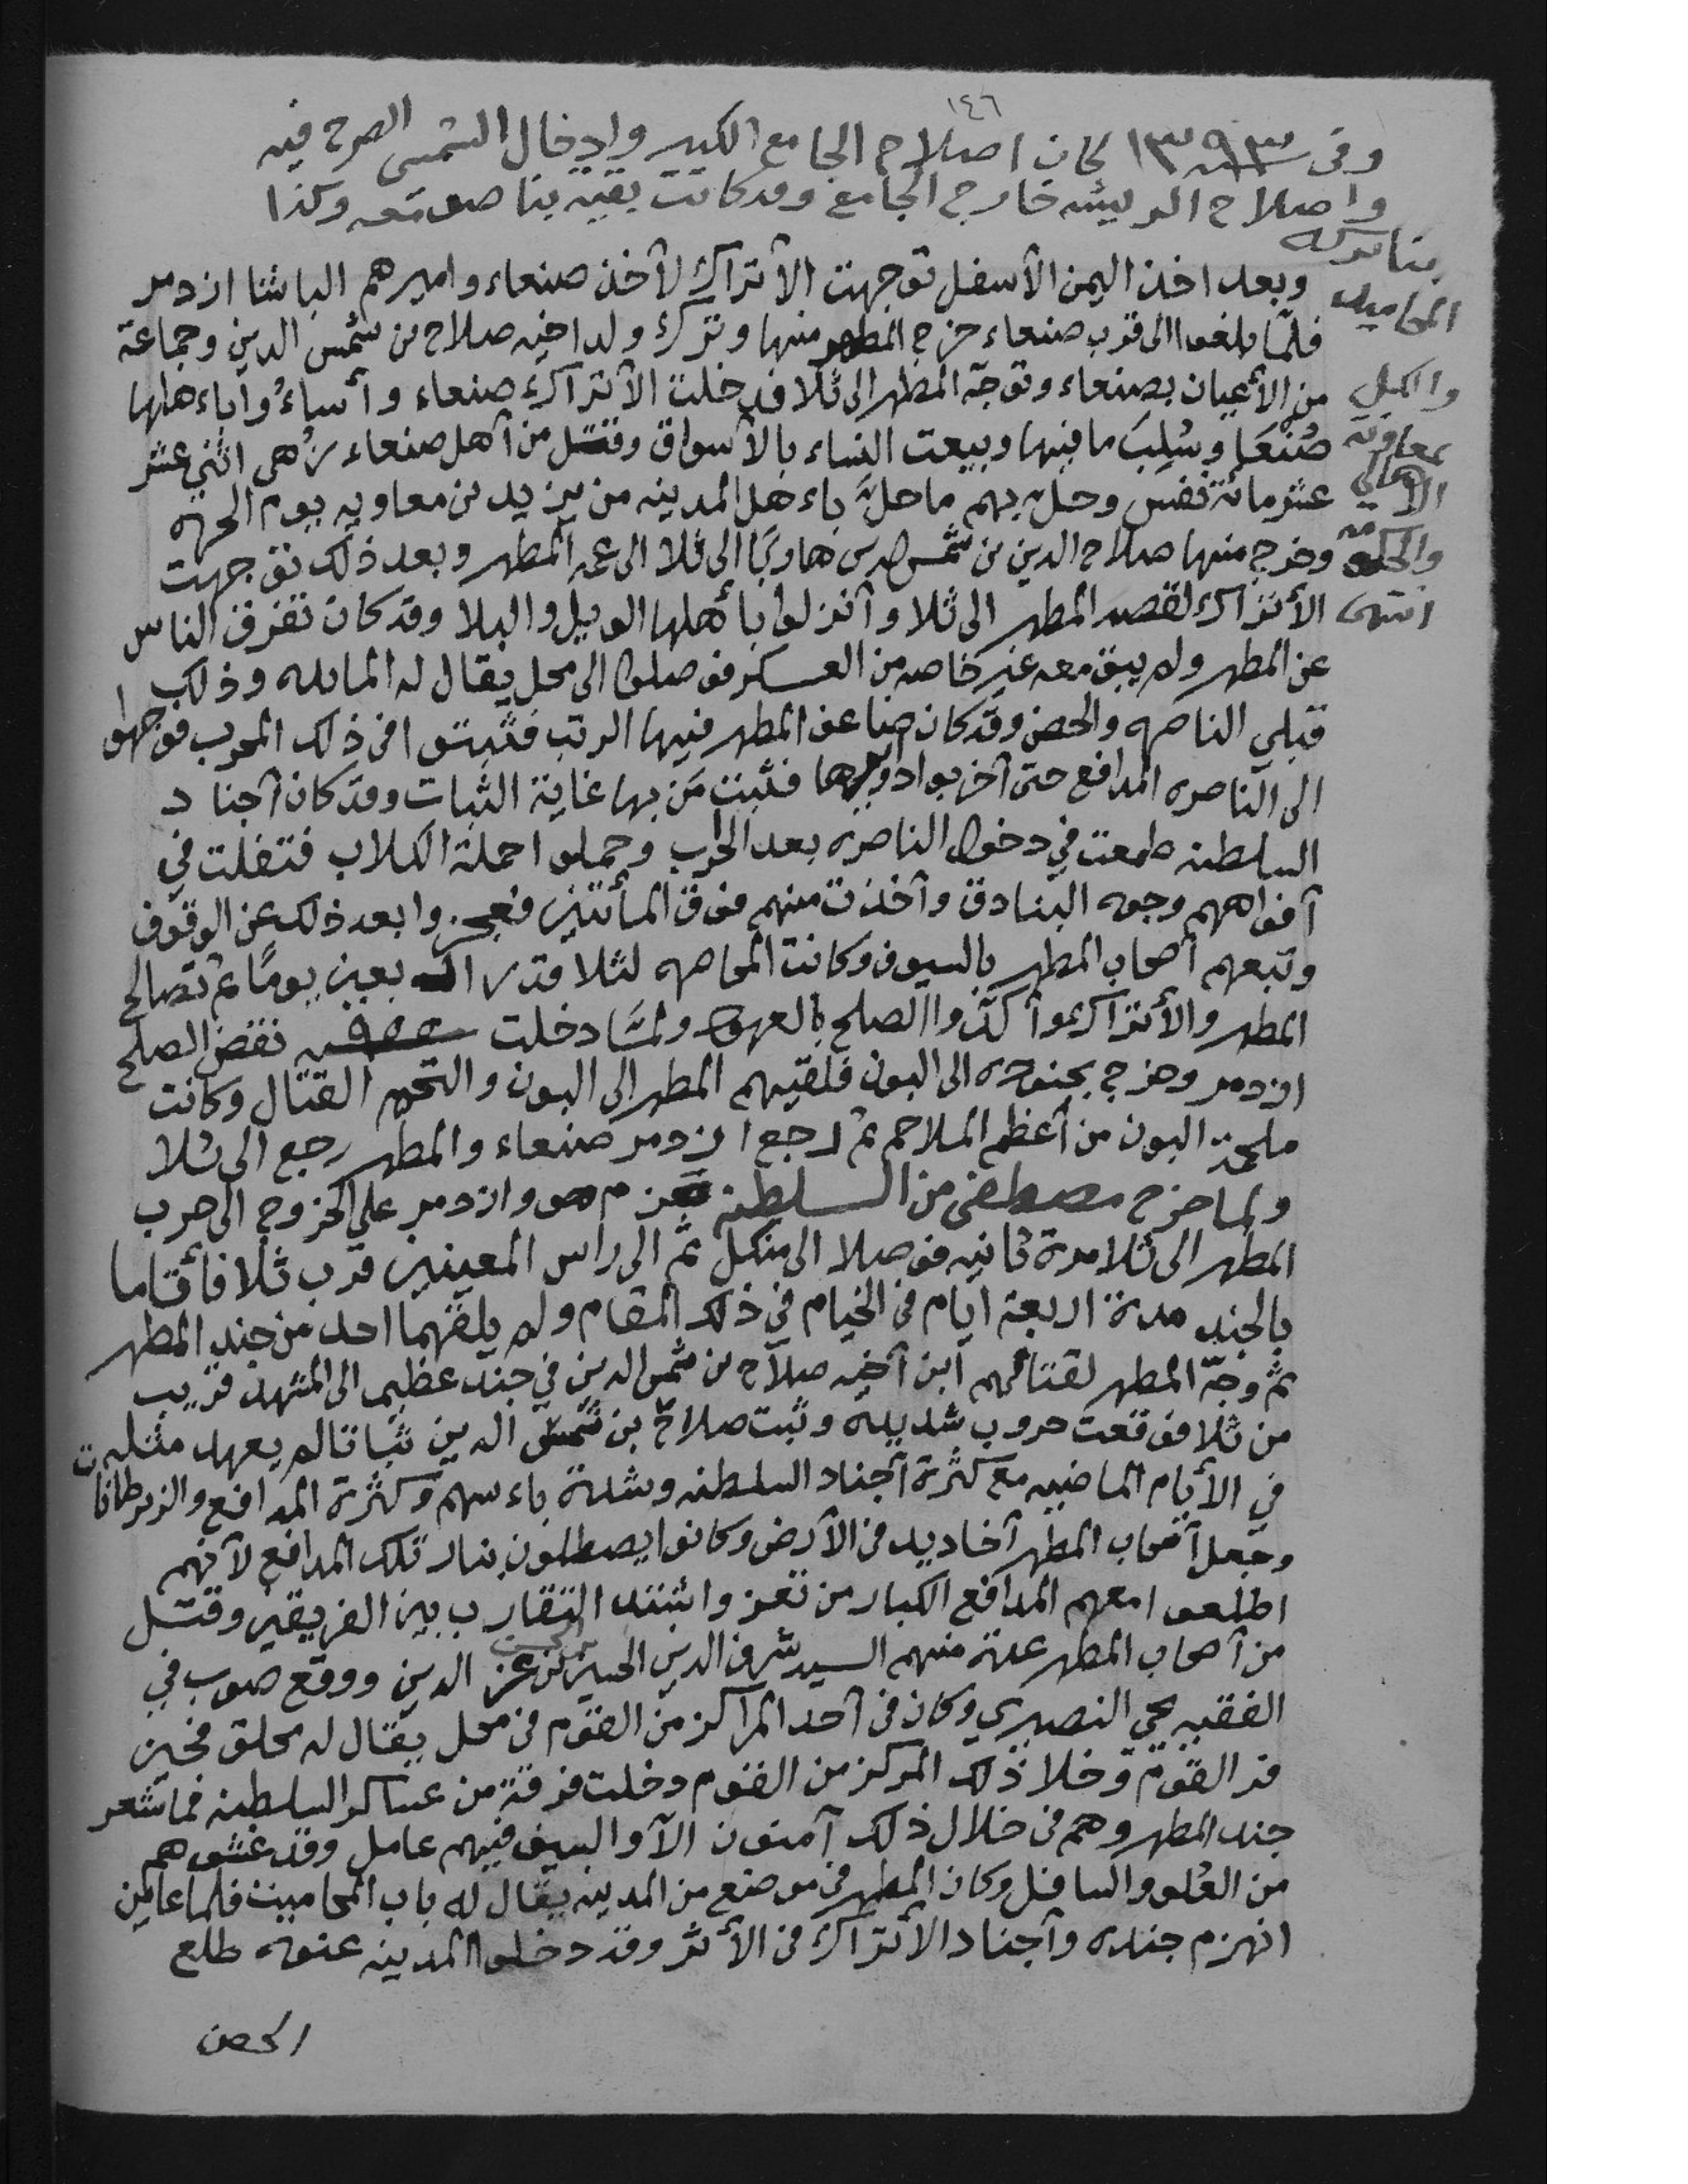 ١٤٦
وفي سنة ١٣٩٣ كان اصلاح الجامع الكبير وادخال الشمسي الصرح فيه
واصلاح البريشه خارج الجامع وقد كانت بقيه بنا صومعه وكذا
بنا بركه
المحاميد
والكل
بمعاونة
الأهالي
والحكومه
انتهى
وبعد اخذ اليمن الأسفل توجهت الأتراك لأخذ صنعاء واميرهم الباشا ازدمر
فلمّا بلغوا الى قرب صنعاء خرج المطهر منها وترك ولد اخيه صلاح بن شمس الدين وجماعة
من الأعيان بصنعاء وتوجّه المطهر الى ثلا فدخلت الأتراك صنعاء وأساءُوا باءهلها
صُنْعًا وسُلِبَ ما فيها وبيعت النساء بالأسواق وقتل من أهل صنعاء زهى اثني عشر
عشر مائة نفس وحلّ بهم ما حلّ باءهل المدينه من يزيد بن معاويه يوم الحره
وخرج منها صلاح الدين بن شمس الدين هاربًا الى ثلا الى عمه المطهر وبعد ذلك توجهت
الأتراك لقصد المطهر الى ثلا وأنزلوا بأهلها الويل والبلا وقد كان تفرق الناس
عن المطهر ولم يبق معه غير خاصه من العسكر فوصلوا الى محل يقال له المابله وذلك
قبلي الناصره والحصن وقد كان ضاعف المطهر فيها الرتب فثبتوا في ذلك الحرب فوجهوا
الى الناصره المدافع حتى أخربوا دوايرها فثبت مَن بها غاية الثبات وقد كان أجناد
السلطنه طمعت في دخول الناصره بعد الخراب وحملوا حملة الكلاب فتفلت في
أفواههم وجوه البنادق وأخذت منهم فوق المأتين فعجزوا بعد ذلك عن الوقوف
وتبعهم أصحاب المطهر بالسيوف وكانت المحاصره لثلا قدر اربعين يومًا ثم تصالح
المطهر والأتراك وأكدّوا الصلح بالعهود ولمّا دخلت سنة ٩٥٥ نقض الصلح
ازدمر وخرج بجنوده الى البون فلقيهم المطهر الى البون والتحم القتال وكانت
ملحمة البون من أعظم الملاحم ثم رجع ازدمر صنعاء والمطهر رجع الى ثلا
ولما خرج مصطفى من السلطنه عزم هو وازدمر على الخروج الى حرب
المطهر الى ثلا مرة ثانيه فوصلا الى منكل ثم الى راس المعينين قرب ثلا فأقاما
بالجند مدة اربعة ايام في الخيام في ذلك المقام ولم يلقهما احد من جند المطهر
ثم وجّه المطهر لقتالهم ابن أخيه صلاح بن شمس الدين في جند عظيم الى المشهد قريب
من ثلا فوقعت حروب شديده وثبت صلاح بن شمس الدين ثباتا لم يعهد مثله
في الأيام الماضيه مع كثرة أجناد السلطنه وشدة باءسهم وكثرة المدافع والزبرطانات
وجعل أصحاب المطهر أخاديد في الأرض وكانوا يصطلون بنار تلك المدافع لأنهم
اطلعوا معهم المدافع الكبار من تعز واشتد التقارب بين الفريقين وقتل
من أصحاب المطهر عدة منهم السيد شرف الدين الحسين بن عز الدين ووقع صوب في
الفقيه يحي النصيري وكان في أحد المراكز من القوم في محل يقال له محلق فحين
فر القوم وخلا ذلك المركز من القوم دخلت فرقة من عساكر السلطنه فما شعر
جند المطهر وهم في خلال ذلك آمنون الاّ والسيف فيهم عامل وقد غشوهم
من العُلو والسافل وكان المطهر في موضع من المدينه يقال له باب المحاميت فلما عاين
انهزم جنده وأجناد الأتراك في الأثر وقد دخلوا المدينه عنوه طلع
الحصن